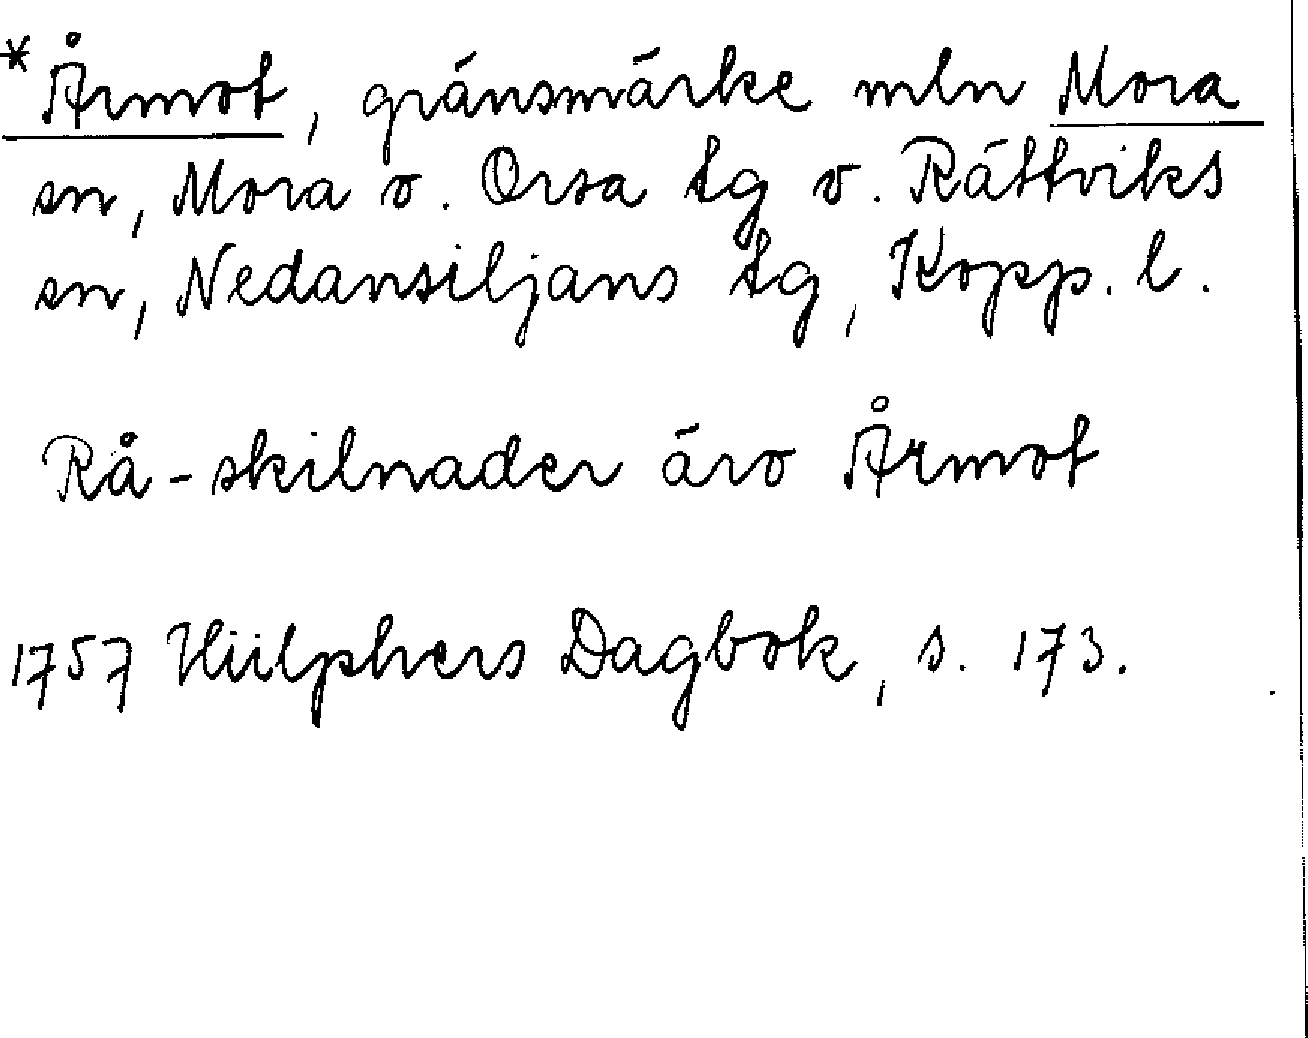 *Årmot, gränsmärke mln Mora
sn, Mora o. Orsa tg o. Rättviks
sn, Nedansiljans tg, Kopp. l.
Rå-skilnader äro Årmot
1757 Hülphers Dagbok, s. 173.